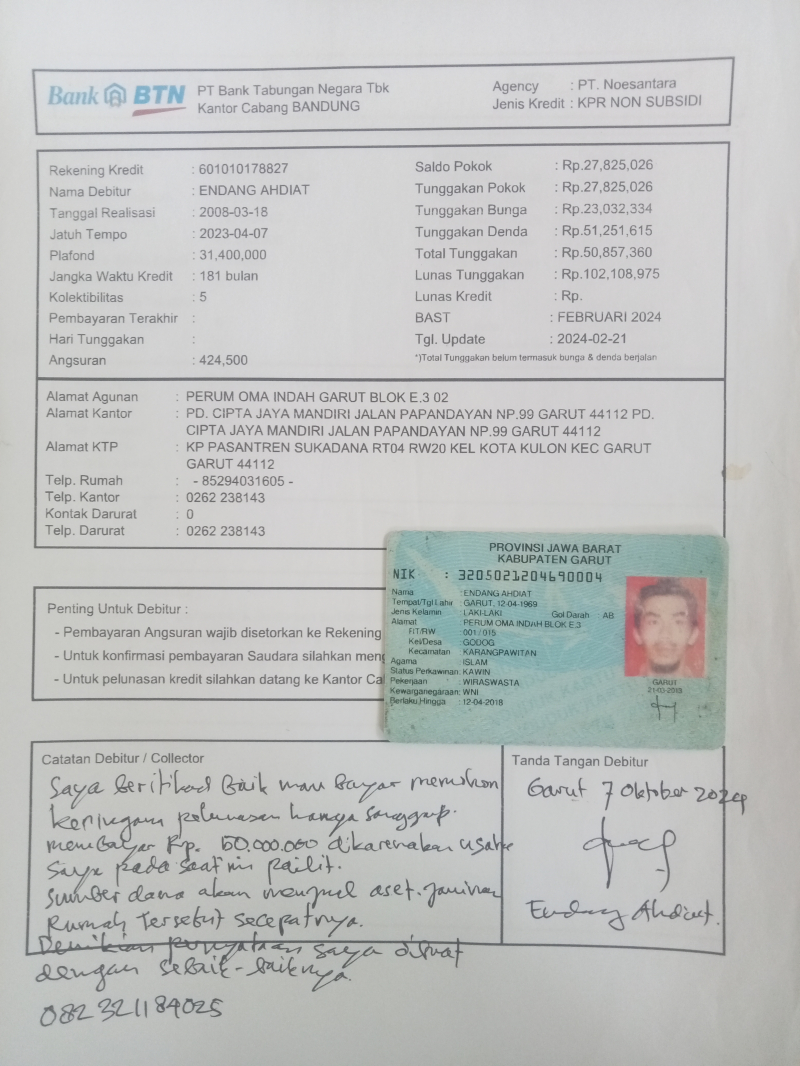 Bank BTN
PT Bank Tabungan Negara Tbk
Kantor Cabang BANDUNG
Agency : PT. Noesantara
Jenis Kredit : KPR NON SUBSIDI
Rekening Kredit : 601010178827
Nama Debitur : ENDANG AHDIAT
Tanggal Realisasi : 2008-03-18
Jatuh Tempo : 2023-04-07
Plafond : 31,400,000
Jangka Waktu Kredit : 181 bulan
Kolektibilitas : 5
Pembayaran Terakhir :
Hari Tunggakan :
Angsuran : 424,500
Saldo Pokok : Rp.27,825,026
Tunggakan Pokok : Rp.27,825,026
Tunggakan Bunga : Rp.23,032,334
Tunggakan Denda : Rp.51,251,615
Total Tunggakan : Rp.50,857,360
Lunas Tunggakan : Rp.102,108,975
Lunas Kredit : Rp.
BAST : FEBRUARI 2024
Tgl. Update : 2024-02-21
*)Total Tunggakan belum termasuk bunga & denda berjalan
Alamat Agunan : PERUM OMA INDAH GARUT BLOK E.3 02
Alamat Kantor : PD. CIPTA JAYA MANDIRI JALAN PAPANDAYAN NP.99 GARUT 44112 PD.
CIPTA JAYA MANDIRI JALAN PAPANDAYAN NP.99 GARUT 44112
Alamat KTP : KP PASANTREN SUKADANA RT04 RW20 KEL KOTA KULON KEC GARUT
GARUT 44112
Telp. Rumah : - 85294031605 -
Telp. Kantor : 0262 238143
Kontak Darurat : 0
Telp. Darurat : 0262 238143
PROVINSI JAWA BARAT
KABUPATEN GARUT
NIK : 3205021204690004
Nama : ENDANG AHDIAT
Tempat/Tgl Lahir : GARUT, 12-04-1969
Jenis Kelamin : LAKI-LAKI Gol Darah AB
Alamat : PERUM OMA INDAH BLOK E.3
RT/RW : 001 / 015
Kel/Desa : GODOG
Kecamatan : KARANGPAWITAN
Agama : ISLAM
Status Perkawinan: KAWIN
Pekerjaan : WIRASWASTA
Kewarganegaraan: WNI
Berlaku Hingga : 12-04-2018
GARUT
21-03-2013
Penting Untuk Debitur :
- Pembayaran Angsuran wajib disetorkan ke Rekening
- Untuk konfirmasi pembayaran Saudara silahkan meng
- Untuk pelunasan kredit silahkan datang ke Kantor Ca
Catatan Debitur / Collector
Saya beritikad baik mau bayar memohon
keringan pelunasan hanya sanggup.
membayar Rp. 50.000.000 dikarenakan usaha
saya pada saat ini pailit.
Sumber dana akan menjual aset. jaminan
Rumah tersebut secepatnya.
Demikian pernyataan saya dibuat
dengan sebaik-baiknya.
082321184025
Tanda Tangan Debitur
Garut 7 Oktober 2024
Endang Ahdiat.